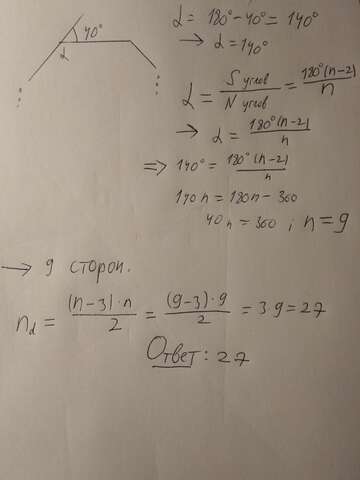 40°
α
α = 180° - 40° = 140°
→ α = 140°
α = S углов / N углов = 180°(n-2) / n
→ α = 180°(n-2) / n
=> 140° = 180°(n-2) / n
140n = 180n - 360
40n = 360 ; n = 9
→ 9 сторон.
n_d = (n-3)·n / 2 = (9-3)·9 / 2 = 3 9 = 27
Ответ: 27